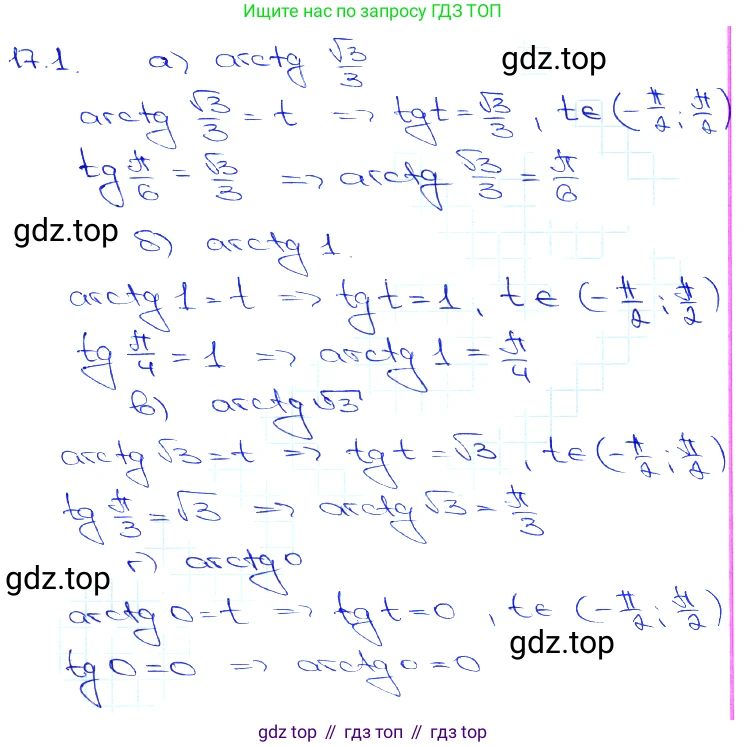 Ищите нас по запросу ГДЗ ТОП
17.1. а) arctg √3/3
gdz.top
arctg √3/3 = t => tg t = √3/3, t∈(-π/2; π/2)
tg π/6 = √3/3 => arctg √3/3 = π/6
gdz.top
б) arctg 1.
arctg 1 = t => tg t = 1, t∈(-π/2; π/2)
tg π/4 = 1 => arctg 1 = π/4
в) arctg √3
arctg √3 = t => tg t = √3, t∈(-π/2; π/2)
tg π/3 = √3 => arctg √3 = π/3
г) arctg 0
gdz.top
arctg 0 = t => tg t = 0, t∈(-π/2; π/2)
gdz.top
tg 0 = 0 => arctg 0 = 0
gdz top // гдз топ // gdz top